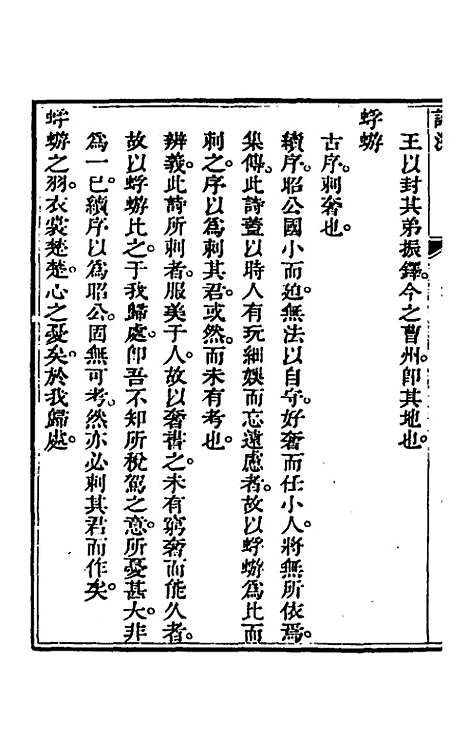 王以封其弟振鐸。今之曹州。卽其地也。
蜉蝣
古序。刺奢也。
續序。昭公國小而迫。無法以自守。好奢而任小人。將無所依焉。
集傳。此詩蓋以時人有玩細娛而忘遠慮者。故以蜉蝣爲比而
刺之。序以爲刺其君。或然。而未有考也。
辨義。此詩所刺者。服美于人。故以奢書之。未有窮奢而能久者。
故以蜉蝣比之。于我歸處。卽吾不知所稅駕之意。所憂甚大。非
爲一己。續序以爲昭公。固無可考。然亦必刺其君而作矣。
蜉蝣之羽。衣裳楚楚。心之憂矣。於我歸處。